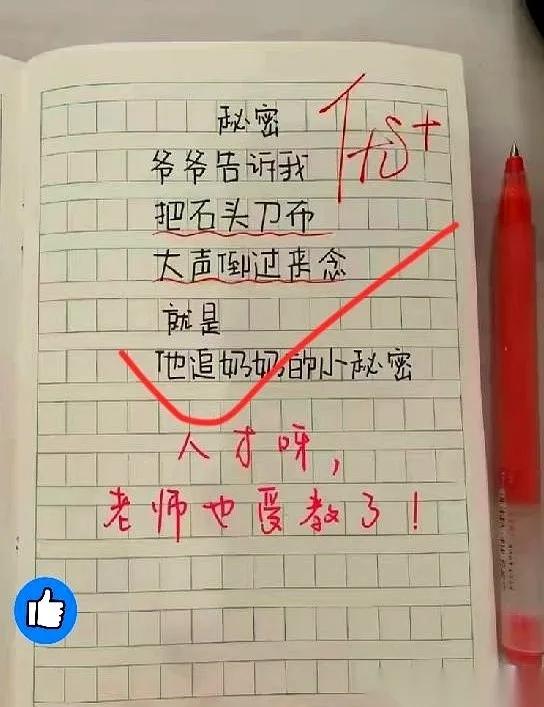 秘密
优+
爷爷告诉我
把石头刀布
大声倒过来念
就是
他追奶奶的小秘密
人才呀，
老师也受教了！